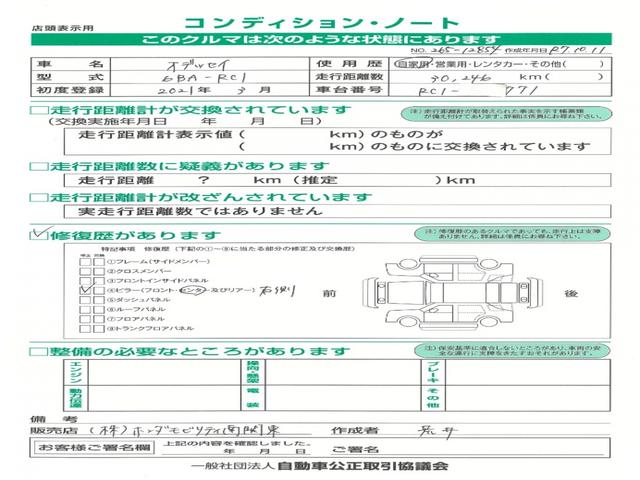 店頭表示用
コンディション・ノート
このクルマは次のような状態にあります
NO.265-12854 作成年月日 R7.10.11
車名 オデッセイ 使用歴 自家用・営業用・レンタカー・その他( )
型式 6BA-RC1 走行距離数 30,246 km( )
初度登録 2021年 3月 車台番号 RC1- 771
□走行距離計が交換されています
(交換実施年月日 年 月 日)
注)走行距離計が取替えられた事実を示す帳票類が備え付けてあります。詳細は係員にお尋ね下さい。
走行距離計表示値( km)のものが
( km)のものに交換されています
□走行距離数に疑義があります
走行距離 ? km(推定 )km
□走行距離計が改ざんされています
実走行距離数ではありません
□修復歴があります
注)修復歴のあるクルマであっても、走行上は支障ありません。詳細は係員にお尋ね下さい。
特記事項 修復歴(下記の①~⑧に当たる部分の修正及び交換歴)
修正 交換
①フレーム(サイドメンバー)
②クロスメンバー
③フロントインサイドパネル
④ピラー(フロント・センター及びリアー) 右側
⑤ダッシュパネル
⑥ルーフパネル
⑦フロアパネル
⑧トランクフロアパネル
前 後
□整備の必要なところがあります
注)保安基準に適合しないところがあり、車両の安全な運行に支障をきたすおそれがあります。
エンジン 操向装置 ブレーキ
動力伝達 電装 その他
備考
販売店 (株)ホンダモビリティ南関東 作成者 荒井
お客様ご署名欄 上記の内容を確認しました。
年 月 日 ご署名
一般社団法人 自動車公正取引協議会